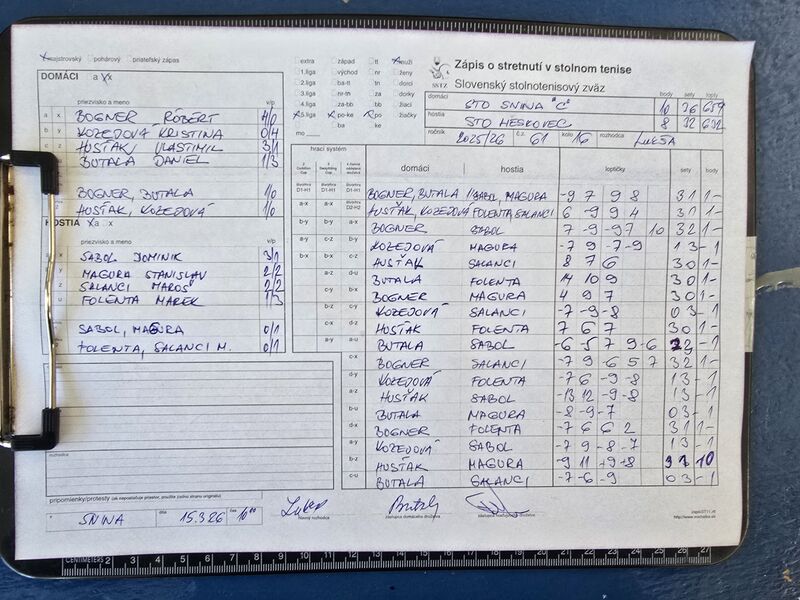 majstrovský pohárový priateľský zápas
DOMÁCI a x
priezvisko a meno v/p
a x BOGNER RÓBERT 4/0
b y KOZEJOVÁ KRISTINA 0/4
c z HUSŤÁK VLASTIMIL 3/1
BUTALA DANIEL 1/3
BOGNER, BUTALA 1/0
HUSŤAK, KOZEJOVÁ 1/0
HOSTIA a x
priezvisko a meno v/p
SABOL DOMINIK 3/1
MAGURA STANISLAV 2/2
SALANCI MAROŠ 2/2
u FOLENTA MAREK 1/3
SABOL, MAGURA 0/1
FOLENTA, SALANCI M. 0/1
rozhodca
pripomienky/protesty (ak nepostačuje priestor, použite zadnú stranu originálu)
v SNINA dňa 15.3.26 čas 10⁰⁰
extra západ tt muži
1.liga východ nr ženy
2.liga ba-tt tn dorci
3.liga tn-za za dorky
4.liga za-bb bb žiaci
5.liga po-ke po žiačky
mo ba ke
SSTZ
Zápis o stretnutí v stolnom tenise
Slovenský stolnotenisový zväz
body sety lopty
domáci STO SNINA "C" 10 36 659
hostia STO HESKOVEC 8 32 632
ročník 2025/26 č.z. 61 kolo 16 rozhodca LUKŠA
hrací systém
domáci hostia loptičky sety body
D1-H1 D1-H1 D1-H1 BOGNER, BUTALA SABOL, MAGURA -9 7 9 8 3 1 1 -
a-x a-x D2-H2 HUSŤAK, KOZEJOVÁ FOLENTA, SALANCI 6 -9 9 4 3 1 1 -
b-y b-y a-x BOGNER SABOL 7 -9 -9 7 10 3 2 1 -
c-z a-y b-y KOZEJOVÁ MAGURA -7 9 -7 -9 1 3 - 1
a-y c-z c-z HUSŤAK SALANCI 8 7 6 3 0 1 -
b-x b-x d-u BUTALA FOLENTA 14 10 9 3 0 1 -
a-z b-x a-y BOGNER MAGURA 4 9 7 3 0 1 -
c-y b-z KOZEJOVÁ SALANCI -7 -9 -8 0 3 - 1
b-z c-u HUSŤAK FOLENTA 7 6 7 3 0 1 -
c-x d-x BUTALA SABOL -6 5 7 9 -6
a-z BOGNER SALANCI -7 9 -6 5 7 3 2 1 -
KOZEJOVÁ FOLENTA -7 6 -9 -8 1 3 - 1
HUSŤAK SABOL -13 12 -9 -8 1 3 - 1
BUTALA MAGURA -8 -9 -7 0 3 - 1
BOGNER FOLENTA -7 6 6 2 3 1 1 -
KOZEJOVÁ SABOL -7 9 -8 -7 1 3 - 1
HUSŤAK MAGURA
BUTALA SALANCI -7 -6 -9 0 3 - 1
hlavný rozhodca zástupca domáceho družstva zástupca hosťujúceho družstva
CENTIMETERS 1 2 3 4 5 6 7 8 9 10 11 12 13 14 15 16 17 18 19 20 21 22 23 24 25 26 27